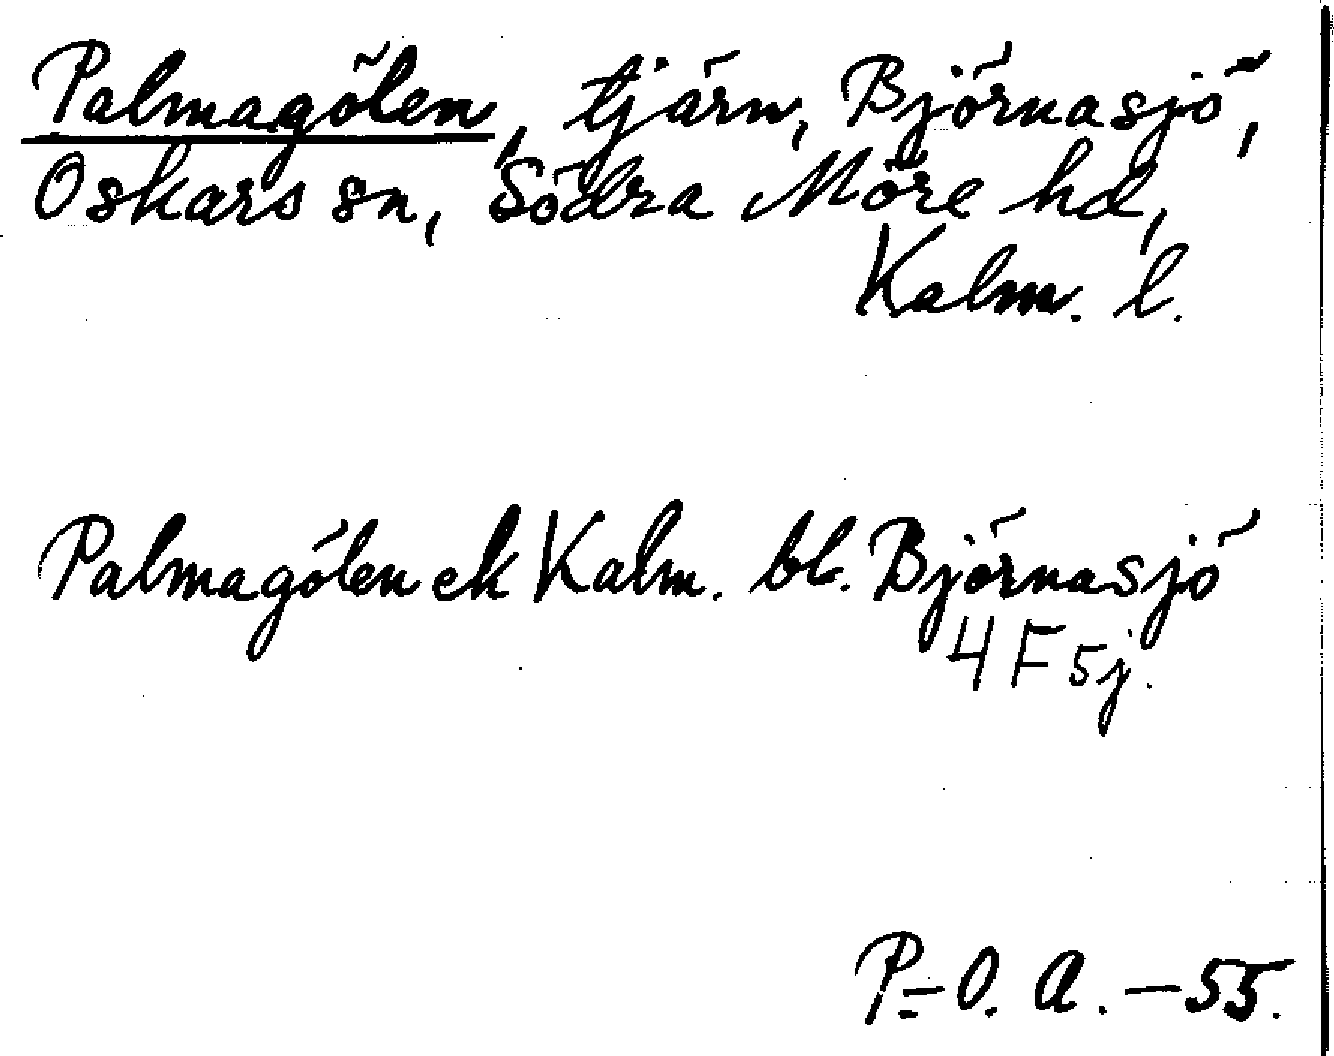 Palmagölen, tjärn, Björnasjö,
Oskars sn, Södra Möre hd,
Kalm. l.
Palmagölen ek Kalm. bl. Björnasjö
4 F 5j.
P.-O. A. - 55.